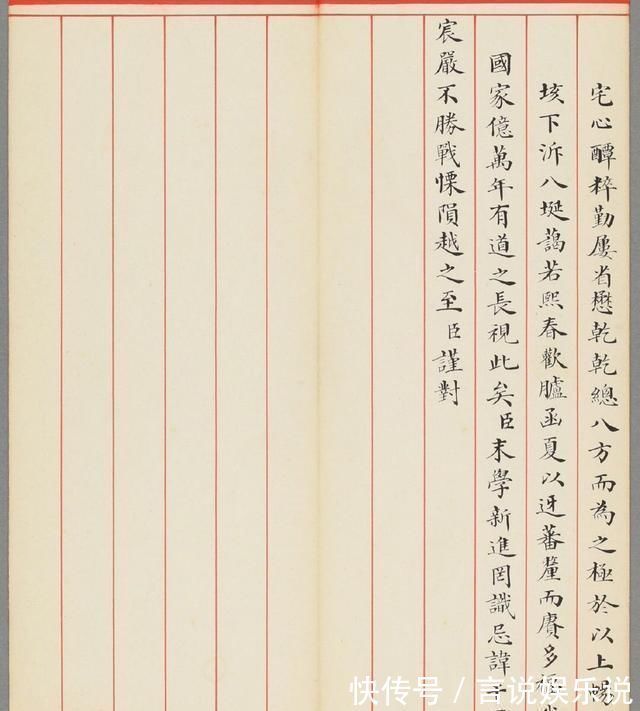 宅心醰粹勤屢省懋乾乾總八方而為之極於以上暢
垓下泝八埏藹若熙春歡臚函夏以迓蕃釐而賡多
國家億萬年有道之長視此矣臣末學新進罔識忌諱
宸嚴不勝戰慄隕越之至臣謹對
快传号/言说娱乐说